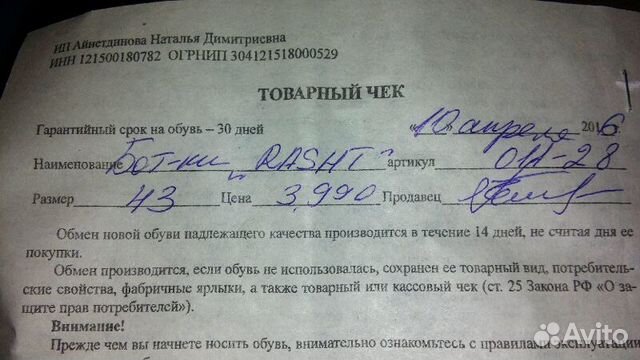 ИП Айнетдинова Наталья Димитриевна
ИНН 121500180782 ОГРНИП 304121518000529
ТОВАРНЫЙ ЧЕК
Гарантийный срок на обувь – 30 дней "10" апреля 2016
Наименование Бот-ки "RASHT" артикул 01А-28
Размер 43 Цена 3,990 Продавец
Обмен новой обуви надлежащего качества производится в течение 14 дней, не считая дня ее
покупки.
Обмен производится, если обувь не использовалась, сохранен ее товарный вид, потребитель-
ские свойства, фабричные ярлыки, а также товарный или кассовый чек (ст. 25 Закона РФ «О за-
щите прав потребителей»).
Внимание!
Прежде чем вы начнете носить обувь, внимательно ознакомьтесь с правилами эксплуатации
Avito